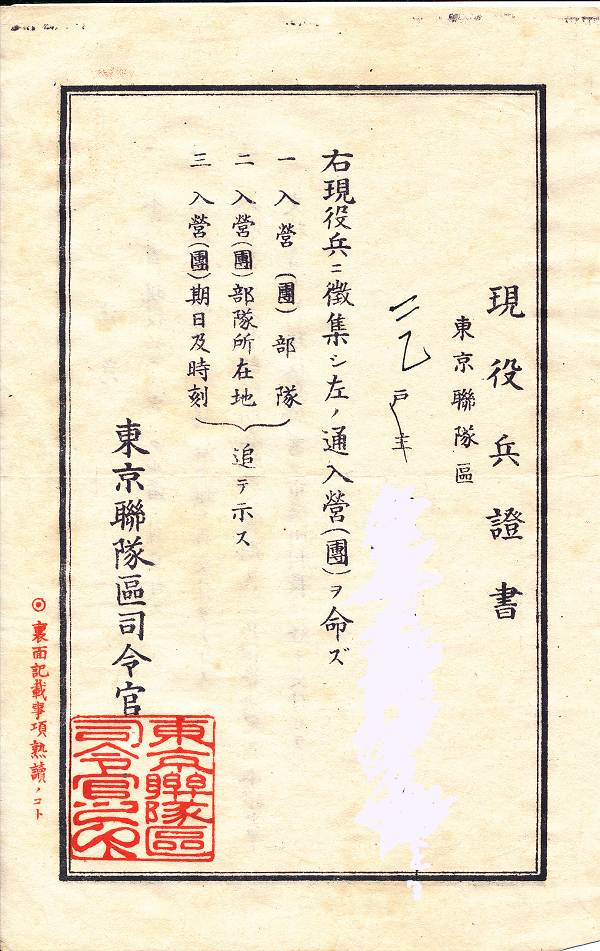 現役兵證書
東京聯隊區
二乙 戸主
右現役兵ニ徴集シ左ノ通入營(團)ヲ命ズ
一 入營(團)部隊
二 入營(團)部隊所在地
三 入營(團)期日及時刻
追テ示ス
東京聯隊區司令官
東京聯隊區
司令官之印
◎裏面記載事項熟讀ノコト